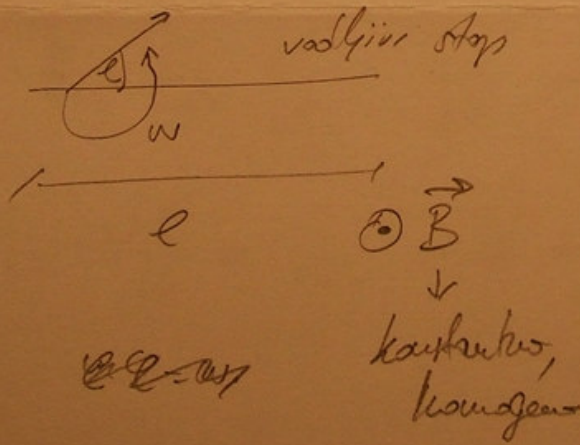 vodljivi štap
φ
w
l
B
konstantno,
homogeno